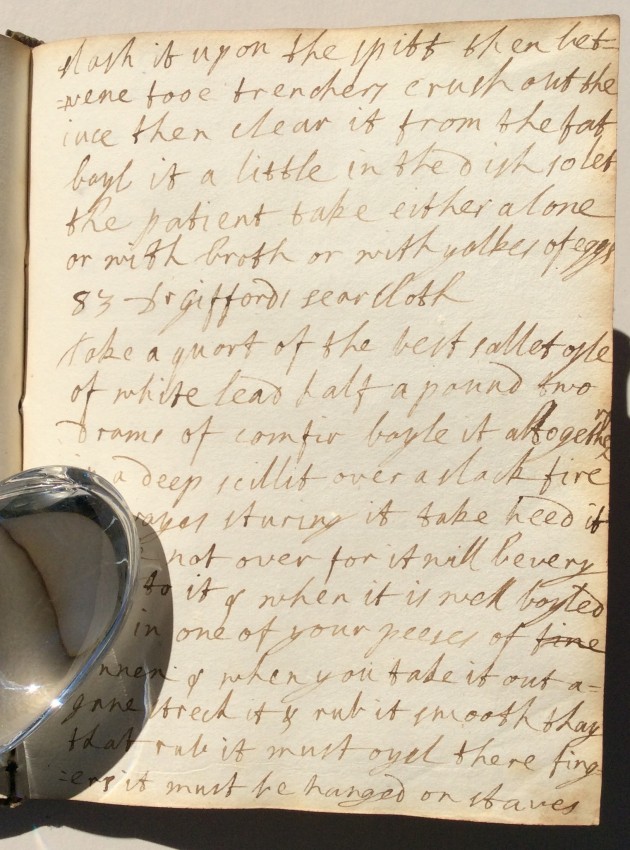 slash it upon the spitt then bet=
=wene tooe trenchers crush out the
iuce then clear it from the fat
boyl it a little in the dish so let
the patient take either alone
or with broth or with yolkes of eggs
83 Dr Giffords searcloth
take a quart of the best sallet oyle
of white lead half a pound two
drams of comfir boyle it altogether
a deep scillit over a slack fire
sturing it take heed it
not over for it will be very
to it & when it is well boyled
in one of your peeses of fine
& when you take it out a=
gane streck it & rub it smooth thay
that rub it must oyel there fing
=ers it must be hanged on staves